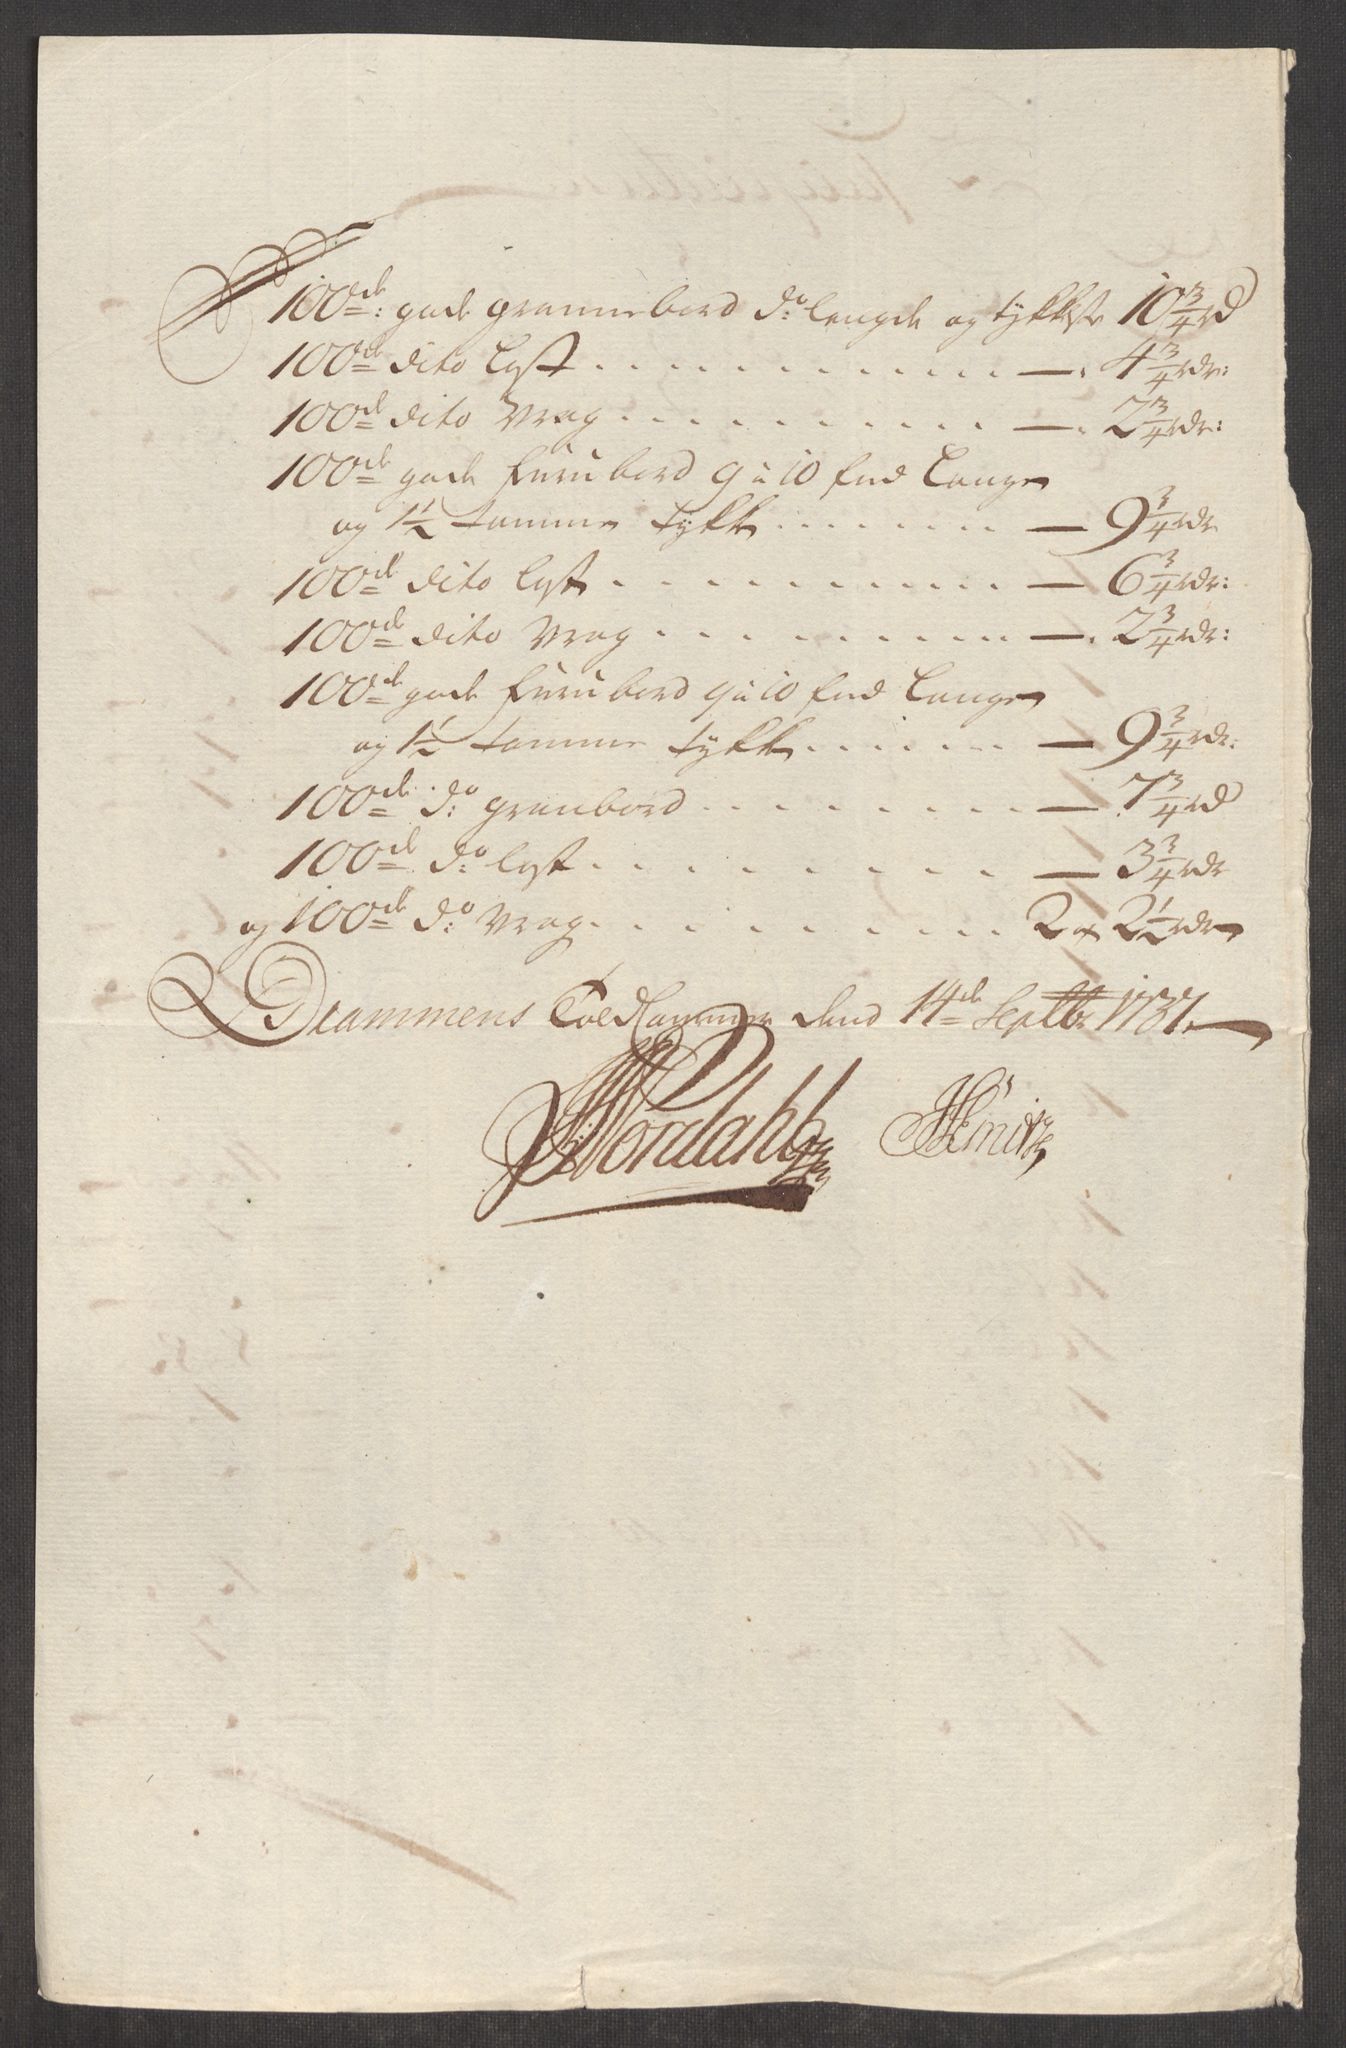 100de: gode grannebord do lengde og tykkelse 10 3/4 rd
100de dito lest . . . . . . . . . . . . — 4 3/4 rdr:
100de dito Vrag . . . . . . . . . . . — 2 3/4 rdr:
100de gode furubord 9 à 10 fod Lange
og 1 1/2 tomme tykke . . . . . . . . — 9 3/4 rdr
100de dito lest . . . . . . . . . . . — 6 3/4 rdr:
100de dito Vrag . . . . . . . . . . — 2 3/4 rdr:
100de gode furubord 9 à 10 fod Lange
og 1 1/2 tomme tykke . . . . . . . — 9 3/4 rdr:
100de do granbord . . . . . . . . . — 7 3/4 rd
100de do lest . . . . . . . . . — 3 3/4 rdr
og 100de do Vrag . . . . . . . . . 2 a 2 1/2 rdr
Drammens Toldkammer dend 14de Septbr 1737.
Nordahl